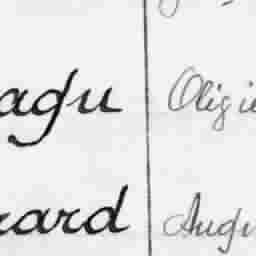 agu Oligie
rard Augu